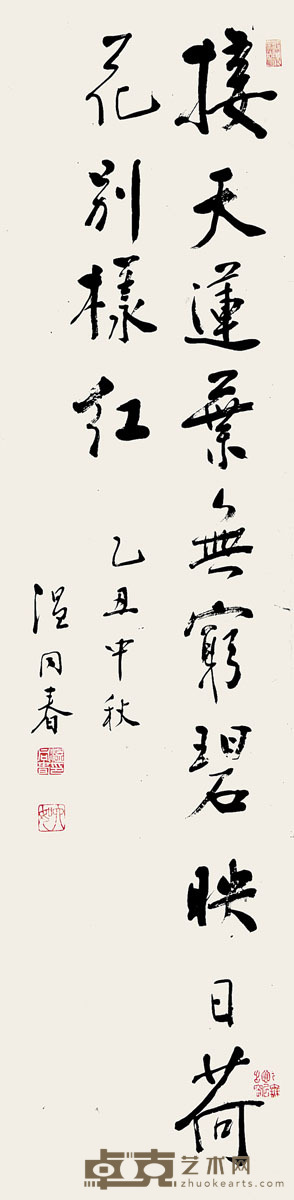 接天蓮葉無窮碧映日荷
花别樣红
乙丑中秋
温同春
卓克艺术网
www.zhuokearts.com